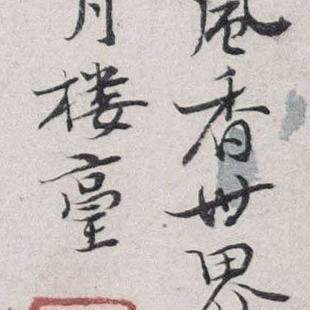 風香世界
月楼臺